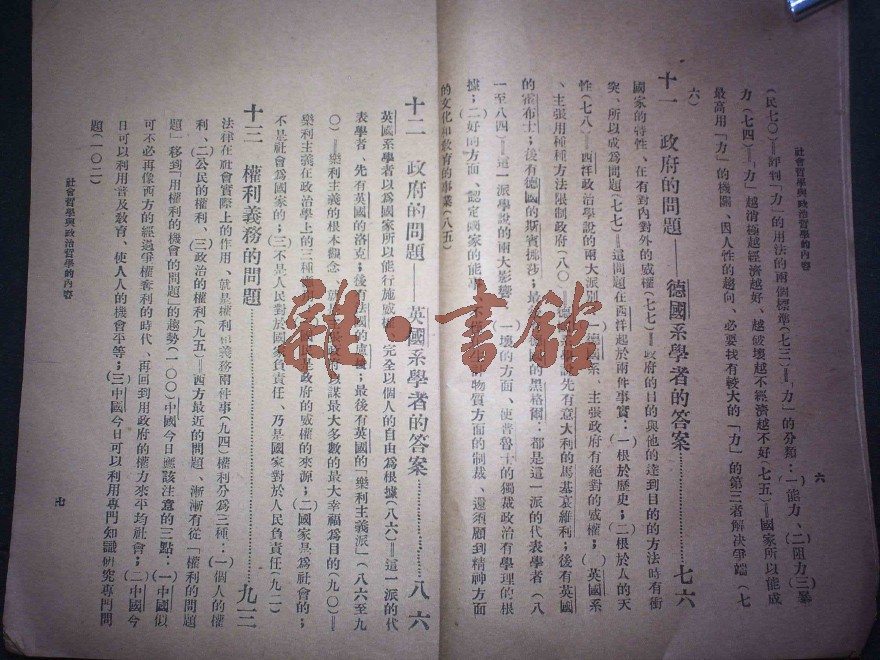 社會哲學與政治哲學的內容
六
(民七〇)＝評判「力」的用法的兩個標準(七三)＝「力」的分類：一能力、二阻力、三暴
力(七四)＝「力」越消極越經濟越好、越破壞越不經濟越不好(七五)＝國家所以能成
最高用「力」的機關、因人性的趨向、必要找有較大的「力」的第三者解決爭端(七
六)
十一　政府的問題——德國系學者的答案…………七六
國家的特性、在有對內對外的威權(七七)＝政府的目的與他的達到目的的方法時有衝
突、所以成爲問題(七七)＝這問題在西洋起於兩件事實：一根於歷史；二根於人的天
性(七八)＝西洋政治學說的兩大派別：(一)德國系、主張政府有絕對的威權；(二)英國系
、主張用種種方法限制政府(八〇)＝德 先有意大利的馬基裴維利；後有英國
的霍布士；後有德國的斯賓挪莎；最 國的黑格爾：都是這一派的代表學者(八
一至八四)＝這一派學說的兩大影響：一壞的方面、使普魯士的獨裁政治有學理的根
據；二好的方面、認定國家的能事、不 物質方面的制裁、還須顧到精神方面
的文化和教育的事業(八五)
十二　政府的問題——英國系學者的答案…………八六
英國系學者以爲國家所以能行施威權、完全以個人的自由爲根據(八六)＝這一派的代
表學者、先有英國的洛克；後有法國的盧梭；最後有英國的「樂利主義派」(八六至九
〇)＝樂利主義的根本觀念、就 以謀最大多數的最大幸福爲目的(九〇)＝
樂利主義在政治學上的三種 是政府的威權的來源；(二)國家是爲社會的；
不是社會爲國家的；(三)不是人民對於國家負責任、乃是國家對於人民負責任(九二)
十三　權利義務的問題…………九三
法律在社會實際上的作用、就是權利和義務兩件事(九四)權利分爲三種：(一)個人的權
利、二公民的權利、三政治的權利(九五)＝西方最近的問題、漸漸有從「權利的問題
題」移到「用權利的機會的問題」的趨勢(一〇〇)中國今日應該注意的三點：(一)中國似
可不必再像西方的經過爭權奪利的時代、再回到用政府的權力來平均社會；(二)中國今
日可以利用普及敎育、使人人的機會平等；(三)中國今日可以利用專門知識硏究專門問
題(一〇二)
社會哲學與政治哲學的內容
七
雜·書館